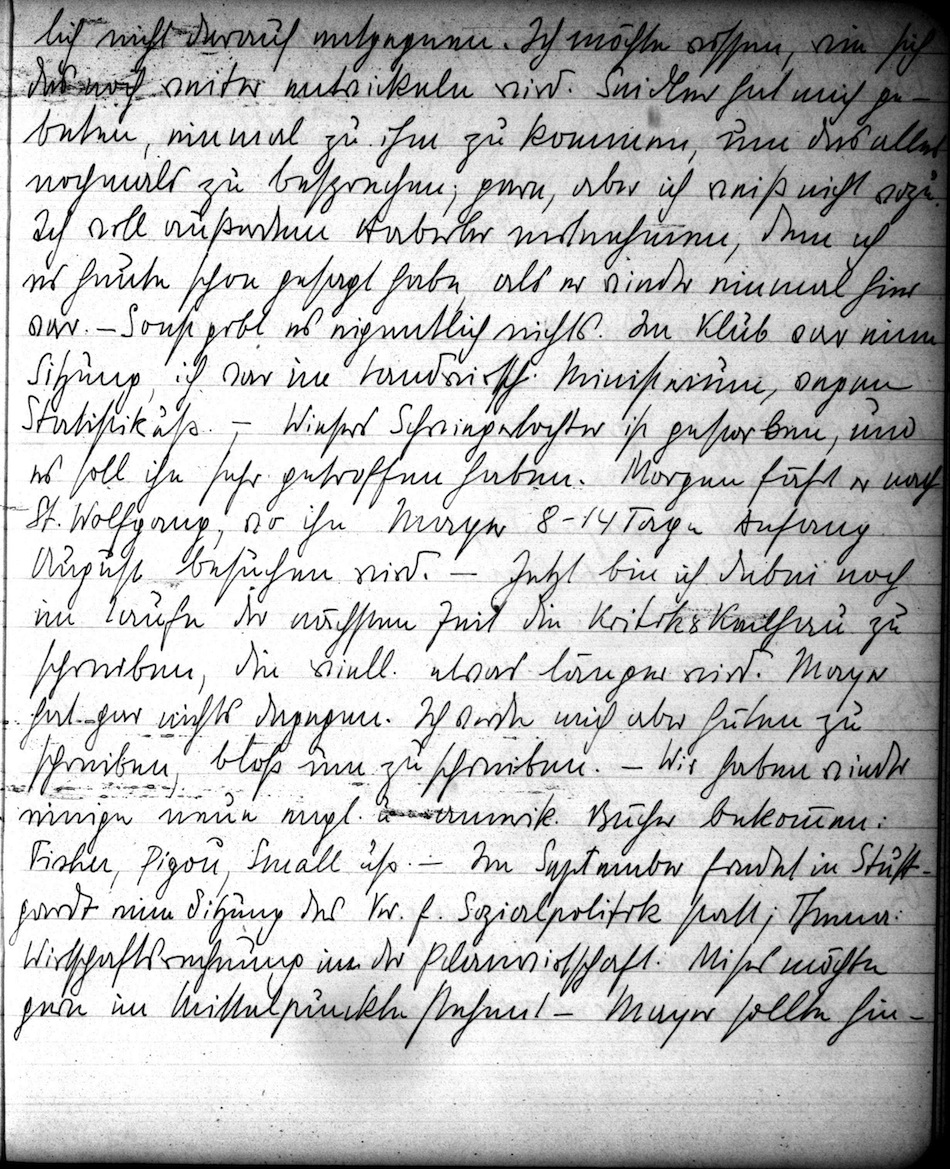 lich nicht darauf entgegnen. Ich möchte wissen, wie sich
das noch weiter entwickeln wird. Seidler hat mich ge-
beten, einmal zu ihm zu kommen, um das alles
nochmals zu besprechen; gern, aber ich weiß nicht wozu.
Ich soll außerdem Haberler vernehmen, dem ich
es heute schon gesagt habe, als er wieder einmal hier
war. – Sonst gibt es eigentlich nichts. Im Klub war eine
Sitzung, ich war im Landwirtsch. Ministerium, wegen
Statistik usf. – Wiesers Schwiegertochter ist gestorben, und
es soll ihn sehr getroffen haben. Morgen fährt er nach
St. Wolfgang, wo ihn Mayer 8–14 Tage Anfang
August besuchen wird. – Jetzt bin ich dabei noch
im Laufe der nächsten Zeit die Kritik zu
schreiben, die viell. etwas länger wird. Mayer
hat gar nichts dagegen. Ich werde mich aber hüten zu
schreiben, bloß um zu schreiben. – Wir haben wieder
einige neue engl. u. amerik. Bücher bekommen:
Fisher, Pigou, Small usf. – Im September findet in Stutt-
gardt eine Sitzung des Ver. f. Sozialpolitik statt; Thema:
Wirtschaftsrechnung in der Planwirtschaft. Mises möchte
gern im Mittelpunkte stehen! – Mayer sollte hin-